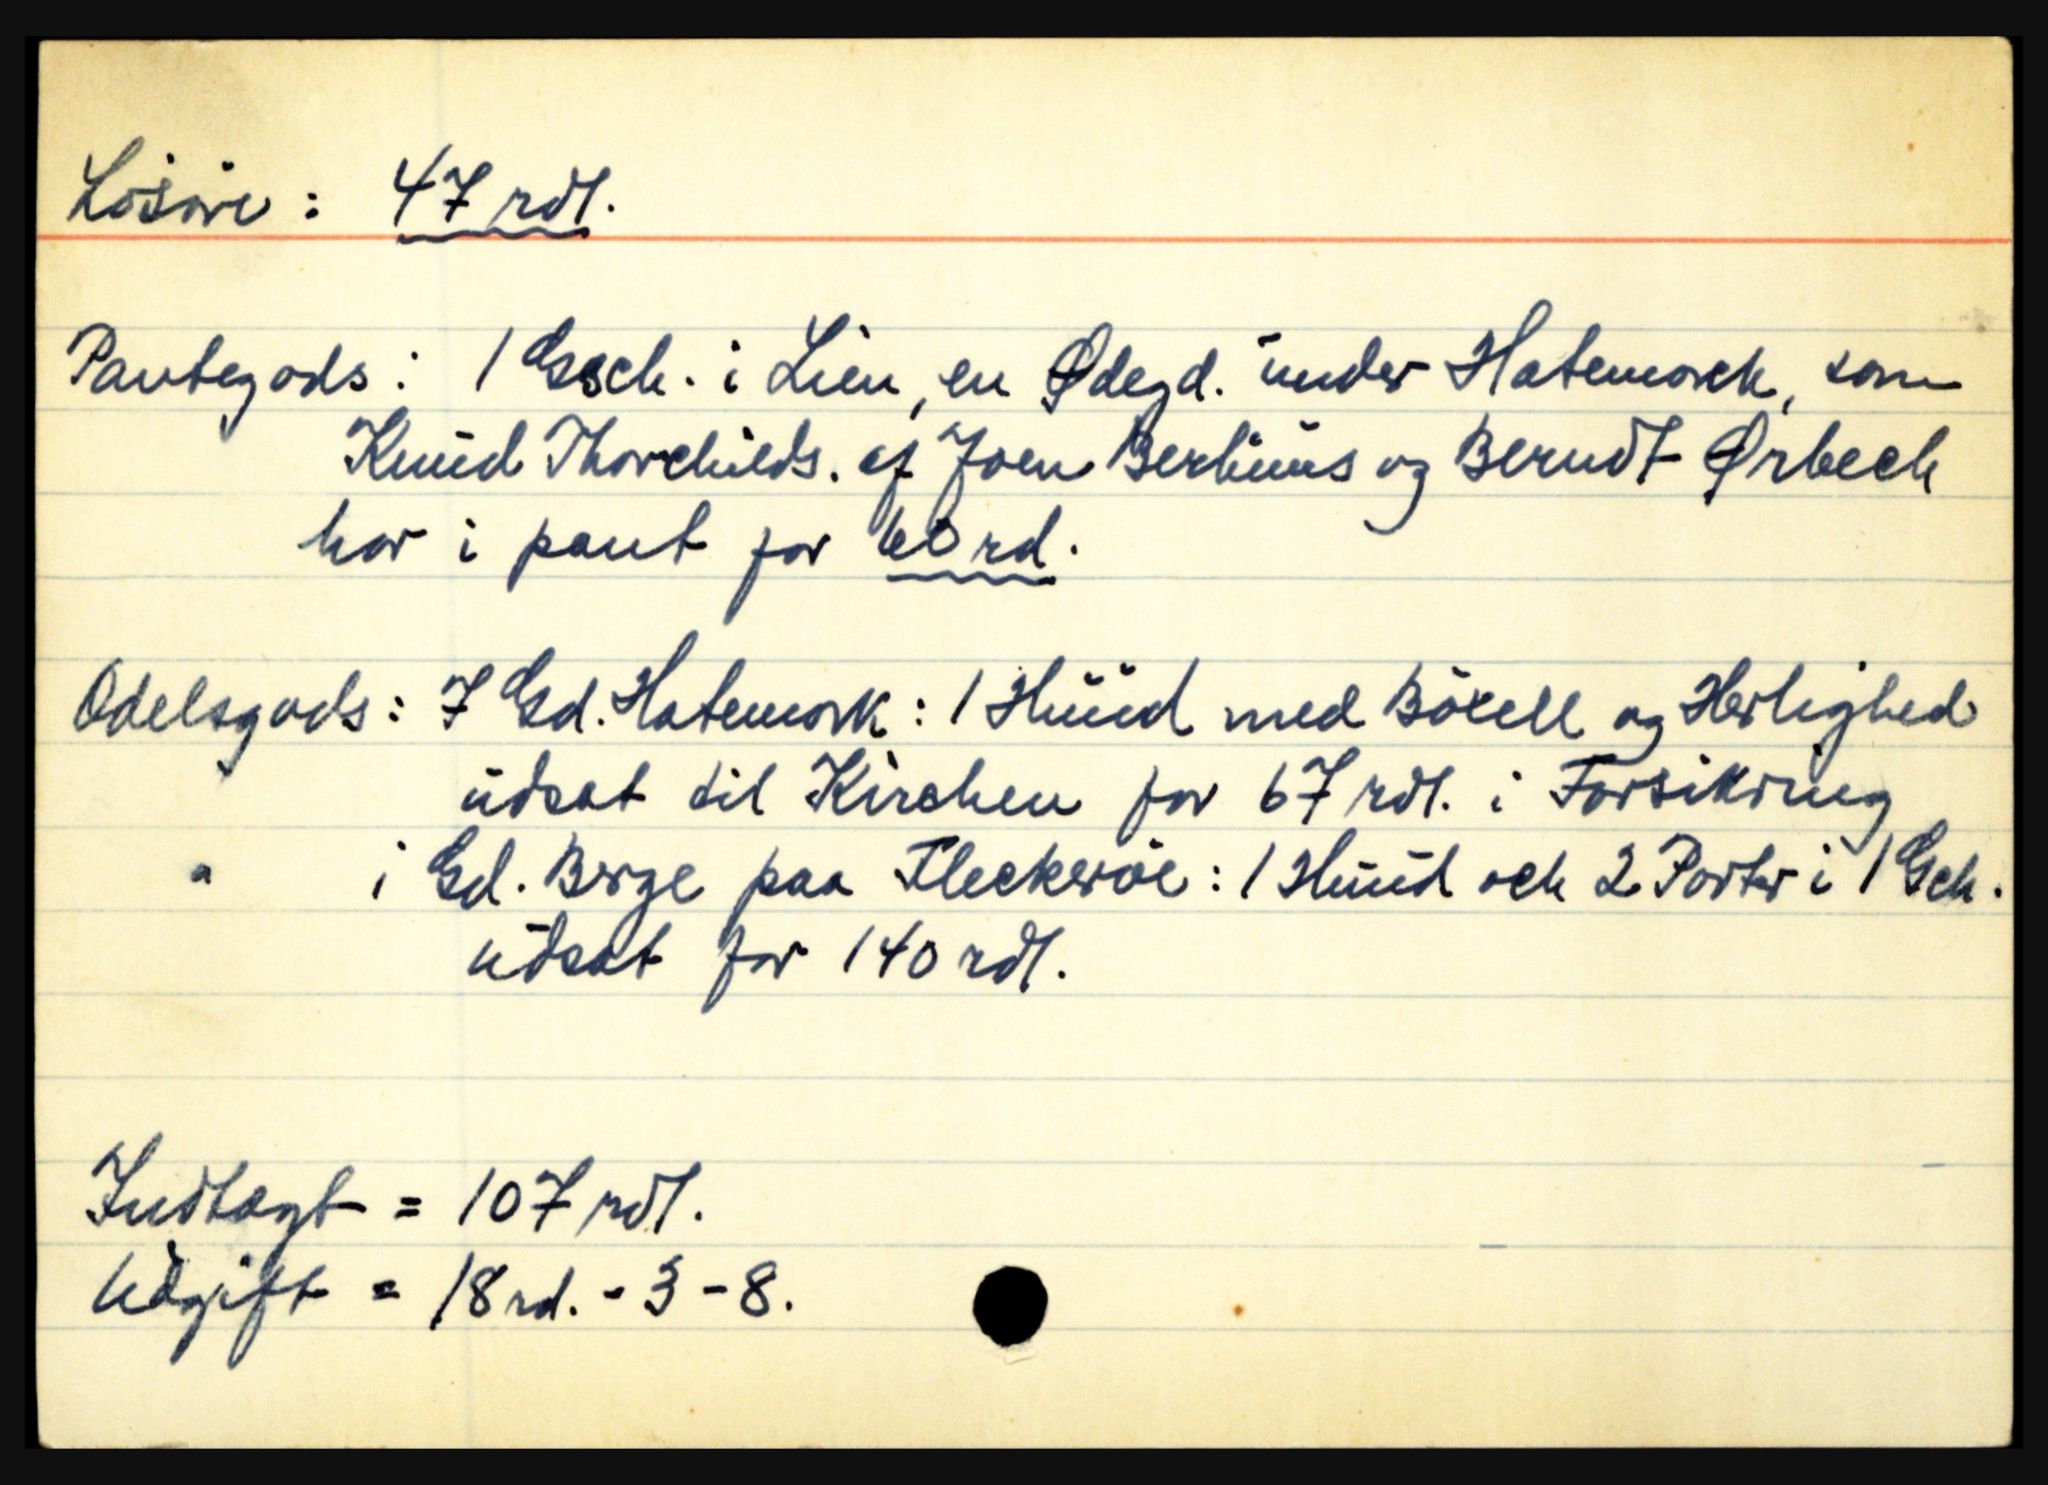 Løsøre : 47 rdl.
Pantegods : 1 Gsch. i Lien, en Ødegd. under Hatemarch, som
Knud Thorchilds. af Joen Berhuus og Berndt Ørbech
har i pant for 60 rd.
Odelsgods : I Gd. Hatemark : 1 Huud med Böxell og Herlighed
udsat til Kirchen for 67 rdl. i Forsikring
" i Gd. Berge paa Fleckerøe : 1 Huud och 2 Parter i 1 Gch.
udsat for 140 rdl.
Indtægt = 107 rdl.
Udgift = 18 rd. - 3 - 8.